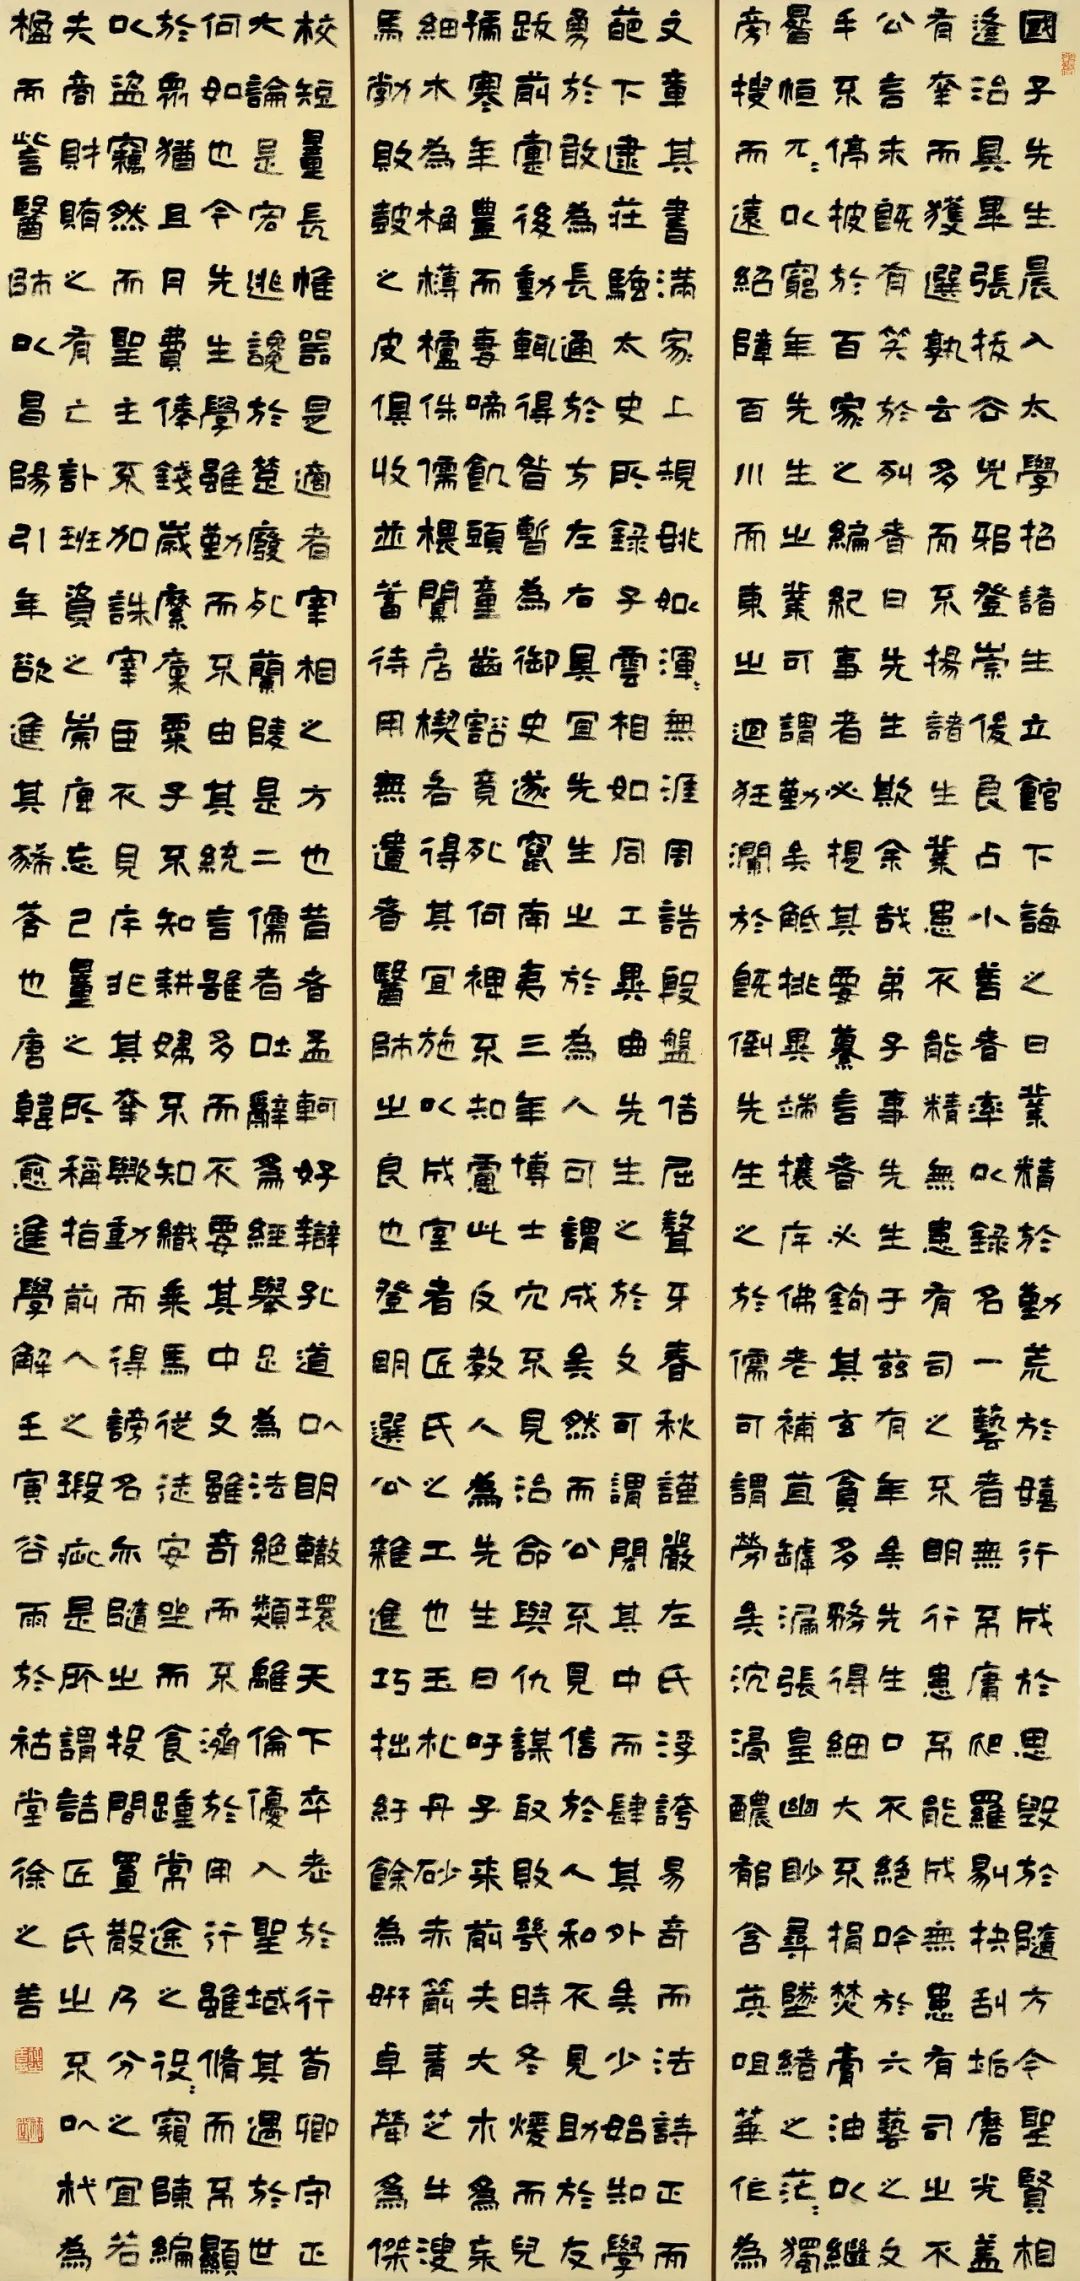 國子先生晨入太學招諸生立館下誨之曰業精於勤荒於嬉行成於思毀於隨方今聖賢相
逢治具畢張拔去兇邪登崇俊良占小善者率以錄名一藝者無不庸爬羅剔抉刮垢磨光蓋
有幸而獲選孰云多而不揚諸生業患不能精無患有司之不明行患不能成無患有司之不
公言未既有笑於列者曰先生欺余哉弟子事先生于茲有年矣先生口不絕吟於六藝之文
手不停披於百家之編紀事者必提其要纂言者必鉤其玄貪多務得細大不捐焚膏油以繼
晷恒兀〻以窮年先生之業可謂勤矣觝排異端攘斥佛老補苴罅漏張皇幽眇尋墜緒之茫〻獨
旁搜而遠紹障百川而東之迴狂瀾於既倒先生之於儒可謂勞矣沉浸醲郁含英咀華作為
文章其書滿家上規姚姒渾〻無涯周誥殷盤佶屈聱牙春秋謹嚴左氏浮誇易奇而法詩正而
葩下逮莊騷太史所錄子雲相如同工異曲先生之於文可謂閎其中而肆其外矣少始知學
勇於敢為長通於方左右具宜先生之於為人可謂成矣然而公不見信於人私不見助於友
跋前疐後動輒得咎暫為御史遂竄南夷三年博士冗不見治命與仇謀取敗幾時冬煖而兒
號寒年豐而妻啼飢頭童齒豁竟死何裨不知慮此反教人為先生曰吁子來前夫大木為杗
細木為桷欂櫨侏儒椳闑扂楔各得其宜施以成室者匠氏之工也玉札丹砂赤箭青芝牛溲
馬勃敗鼓之皮俱收並蓄待用無遺者醫師之良也登明選公雜進巧拙紆餘為妍卓犖為傑
校短量長惟器是適者宰相之方也昔者孟軻好辯孔道以明轍環天下卒老於行荀卿守正
大論是宏逃讒於楚廢死蘭陵是二儒者吐辭為經舉足為法絕類離倫優入聖域其遇於世
何如也今先生學雖勤而不由其統言雖多而不要其中文雖奇而不濟於用行雖脩而不顯
於眾猶且月費俸錢歲糜廩粟子不知耕婦不知織乘馬從徒安坐而食踵常途之役〻窺陳編
以盜竊然而聖主不加誅宰臣不見斥非其幸歟動而得謗名亦隨之投閒置散乃分之宜若
夫商財賄之有亡計班資之崇庳忘己量之所稱指前人之瑕疵是所謂詰匠氏之不以杙為
楹而訾醫師以昌陽引年欲進其豨苓也唐韓愈進學解壬寅谷雨於祜堂徐之善